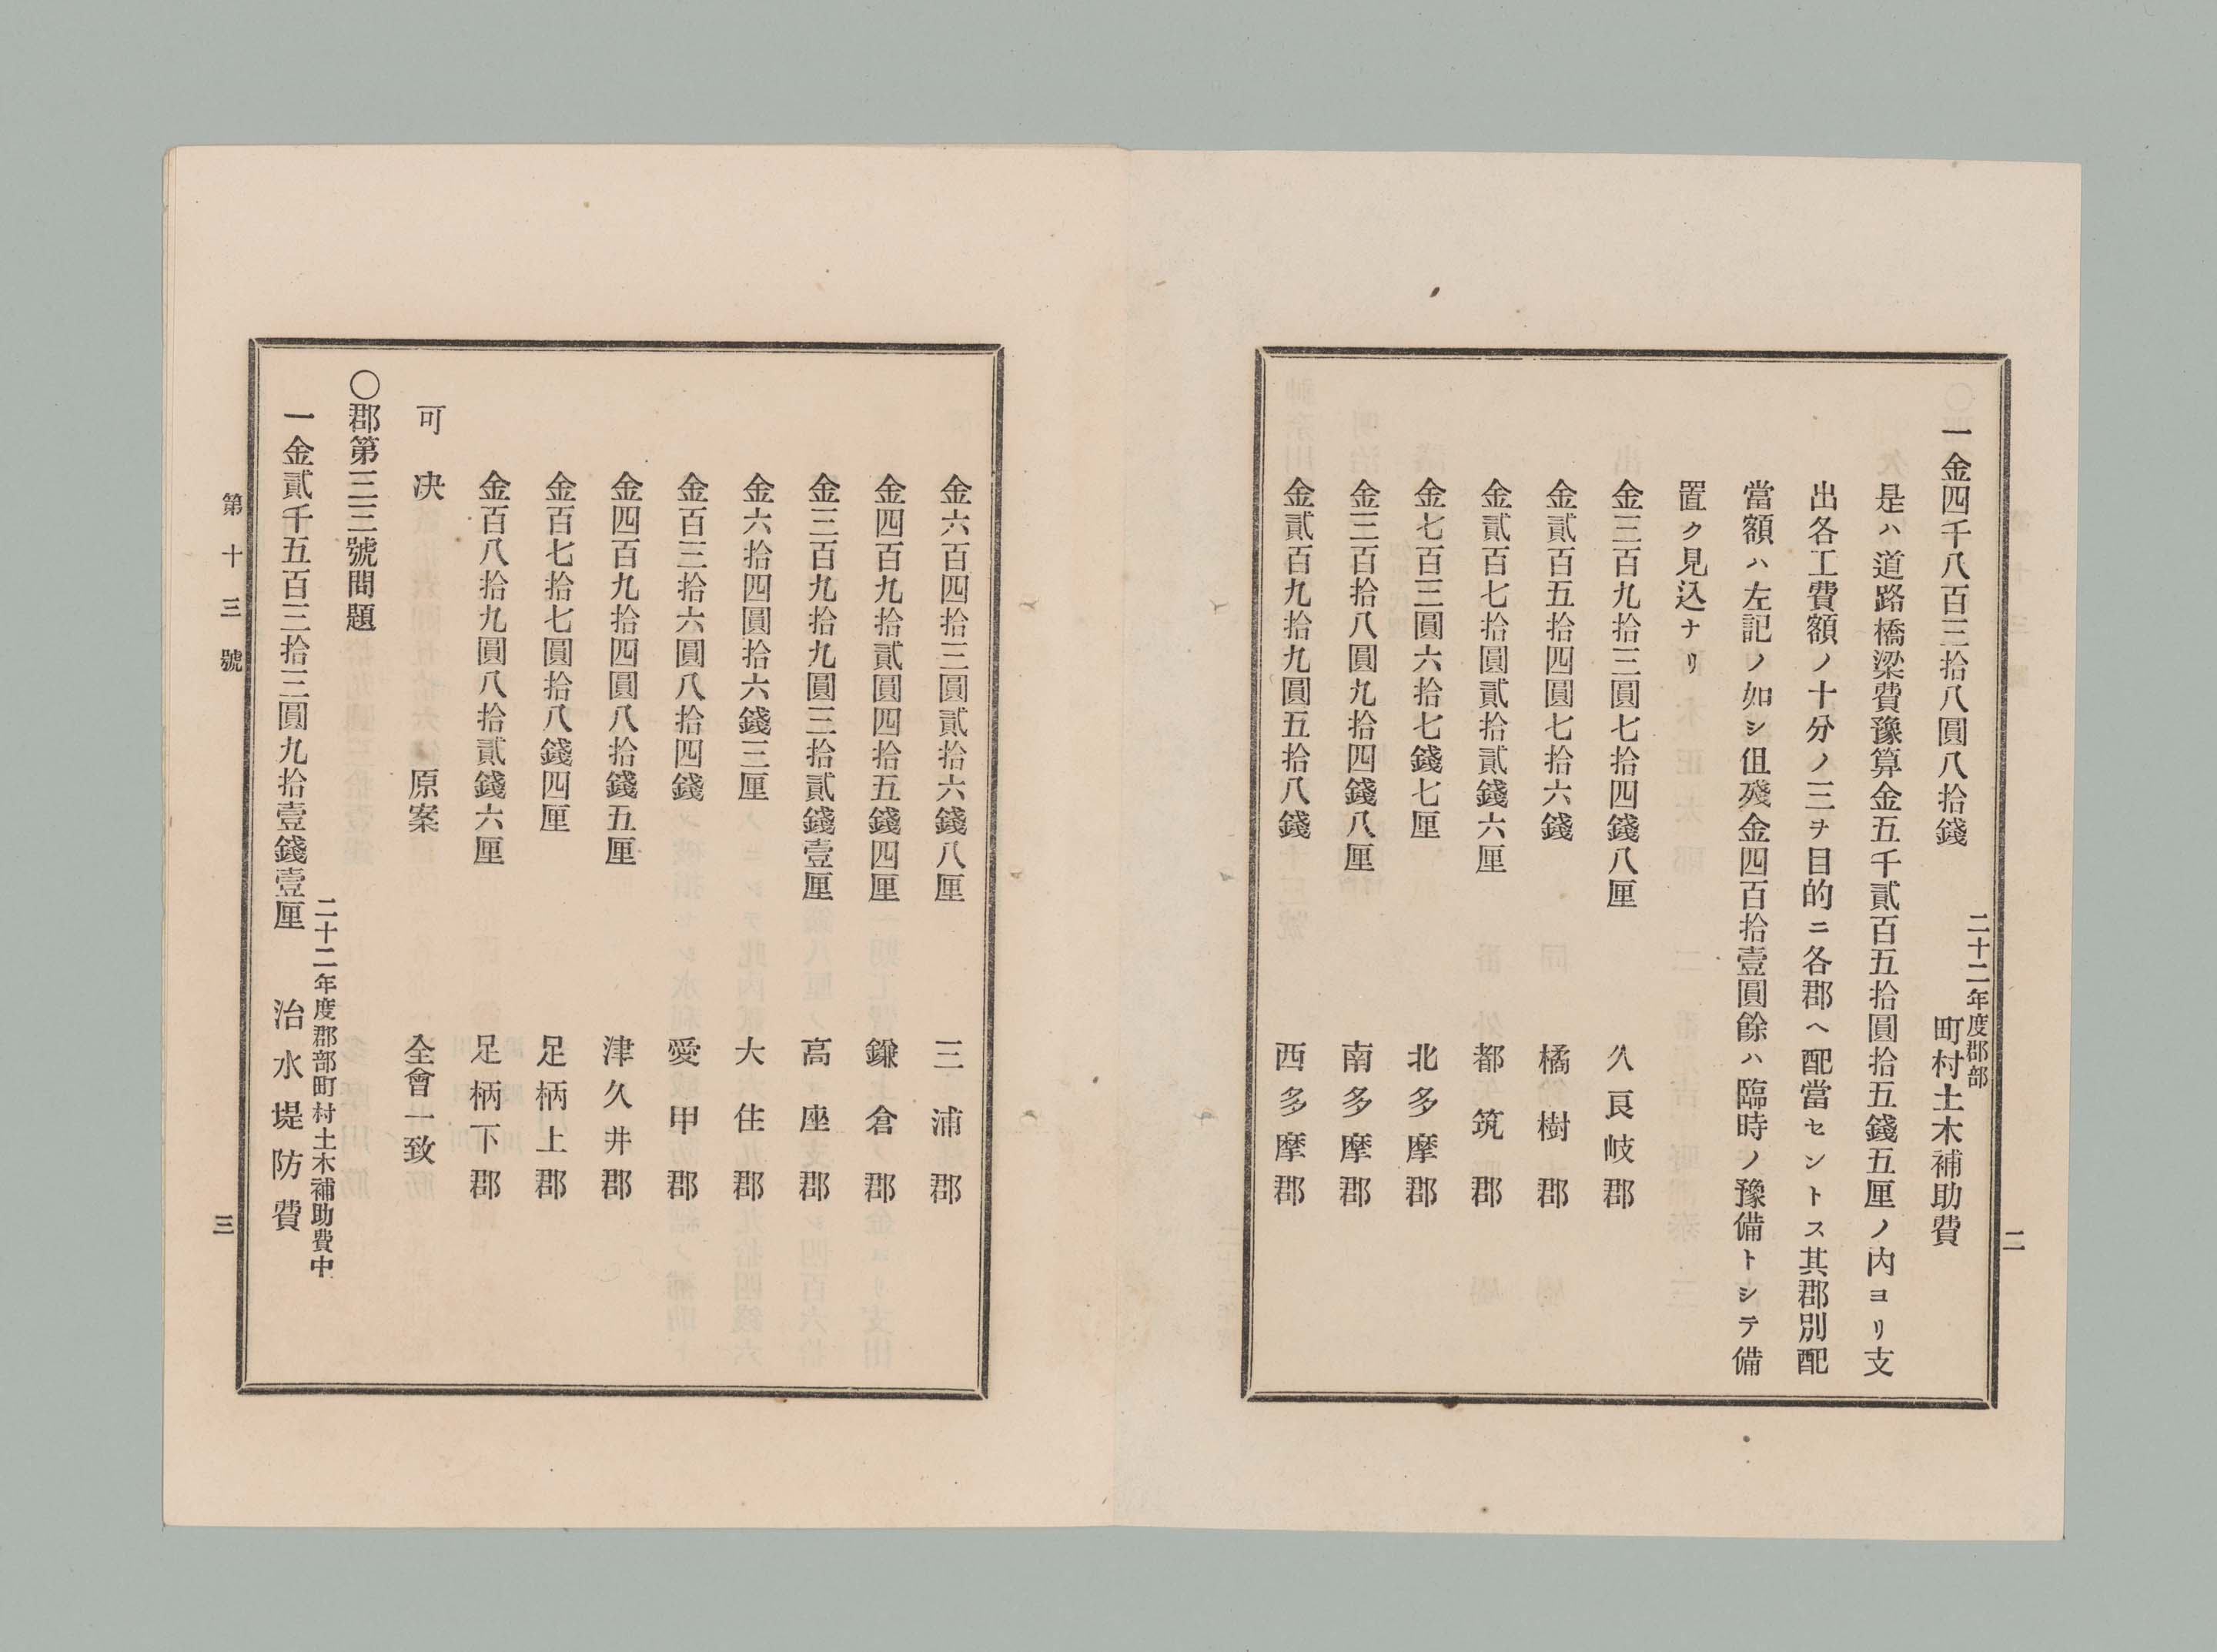 二
一金四千八百三拾八圓八拾錢 二十二年度郡部町村土木補助費
是ハ道路橋梁費豫算金五千貳百五拾圓拾五錢五厘ノ内ヨリ支
出各工費額ノ十分ノ三ヲ目的ニ各郡ヘ配當セントス其郡別配
當額ハ左記ノ如シ伹殘金四百拾壹圓餘ハ臨時ノ豫備トシテ備
置ク見込ナリ
金三百九拾三圓七拾四錢八厘 久良岐郡
金貳百五拾四圓七拾六錢 橘樹郡
金貳百七拾圓貳拾貳錢六厘 都筑郡
金七百三圓六拾七錢七厘 北多摩郡
金三百拾八圓九拾四錢八厘 南多摩郡
金貳百九拾九圓五拾八錢 西多摩郡
金六百四拾三圓貳拾六錢八厘 三浦郡
金四百九拾貳圓四拾五錢四厘 鎌倉郡
金三百九拾九圓三拾貳錢壹厘 高座郡
金六拾四圓拾六錢三厘 大住郡
金百三拾六圓八拾四錢 愛甲郡
金四百九拾四圓八拾錢五厘 津久井郡
金百七拾七圓拾八錢四厘 足柄上郡
金百八拾九圓八拾貳錢六厘 足柄下郡
可決 原案 全會一致
〇郡第三三號問題
一金貳千五百三拾三圓九拾壹錢壹厘 二十二年度郡部町村土木補助費中 治水堤防費
第十三號 三